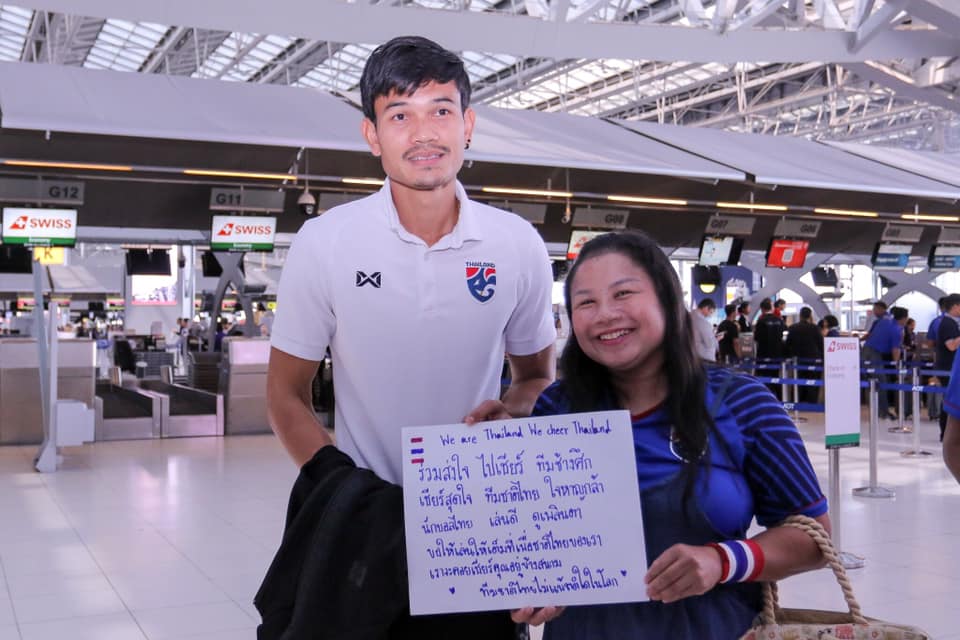 G12
G11
G08
G07
G06
SWISS
Economy
SWISS
K
SWISS
THAILAND
We are Thailand We cheer Thailand
ร่วมส่งใจ ไปเชียร์ ทีมช้างศึก
เชียร์สุดใจ ทีมชาติไทย ใจหาญกล้า
นักบอลไทย เล่นดี ดูเพลินตา
ขอให้เล่นให้เต็มที่เพื่อชาติไทยของเรา
เราจะคอยเชียร์คุณอยู่ข้างสนาม
ทีมชาติไทยไม่แพ้ชาติใดในโลก